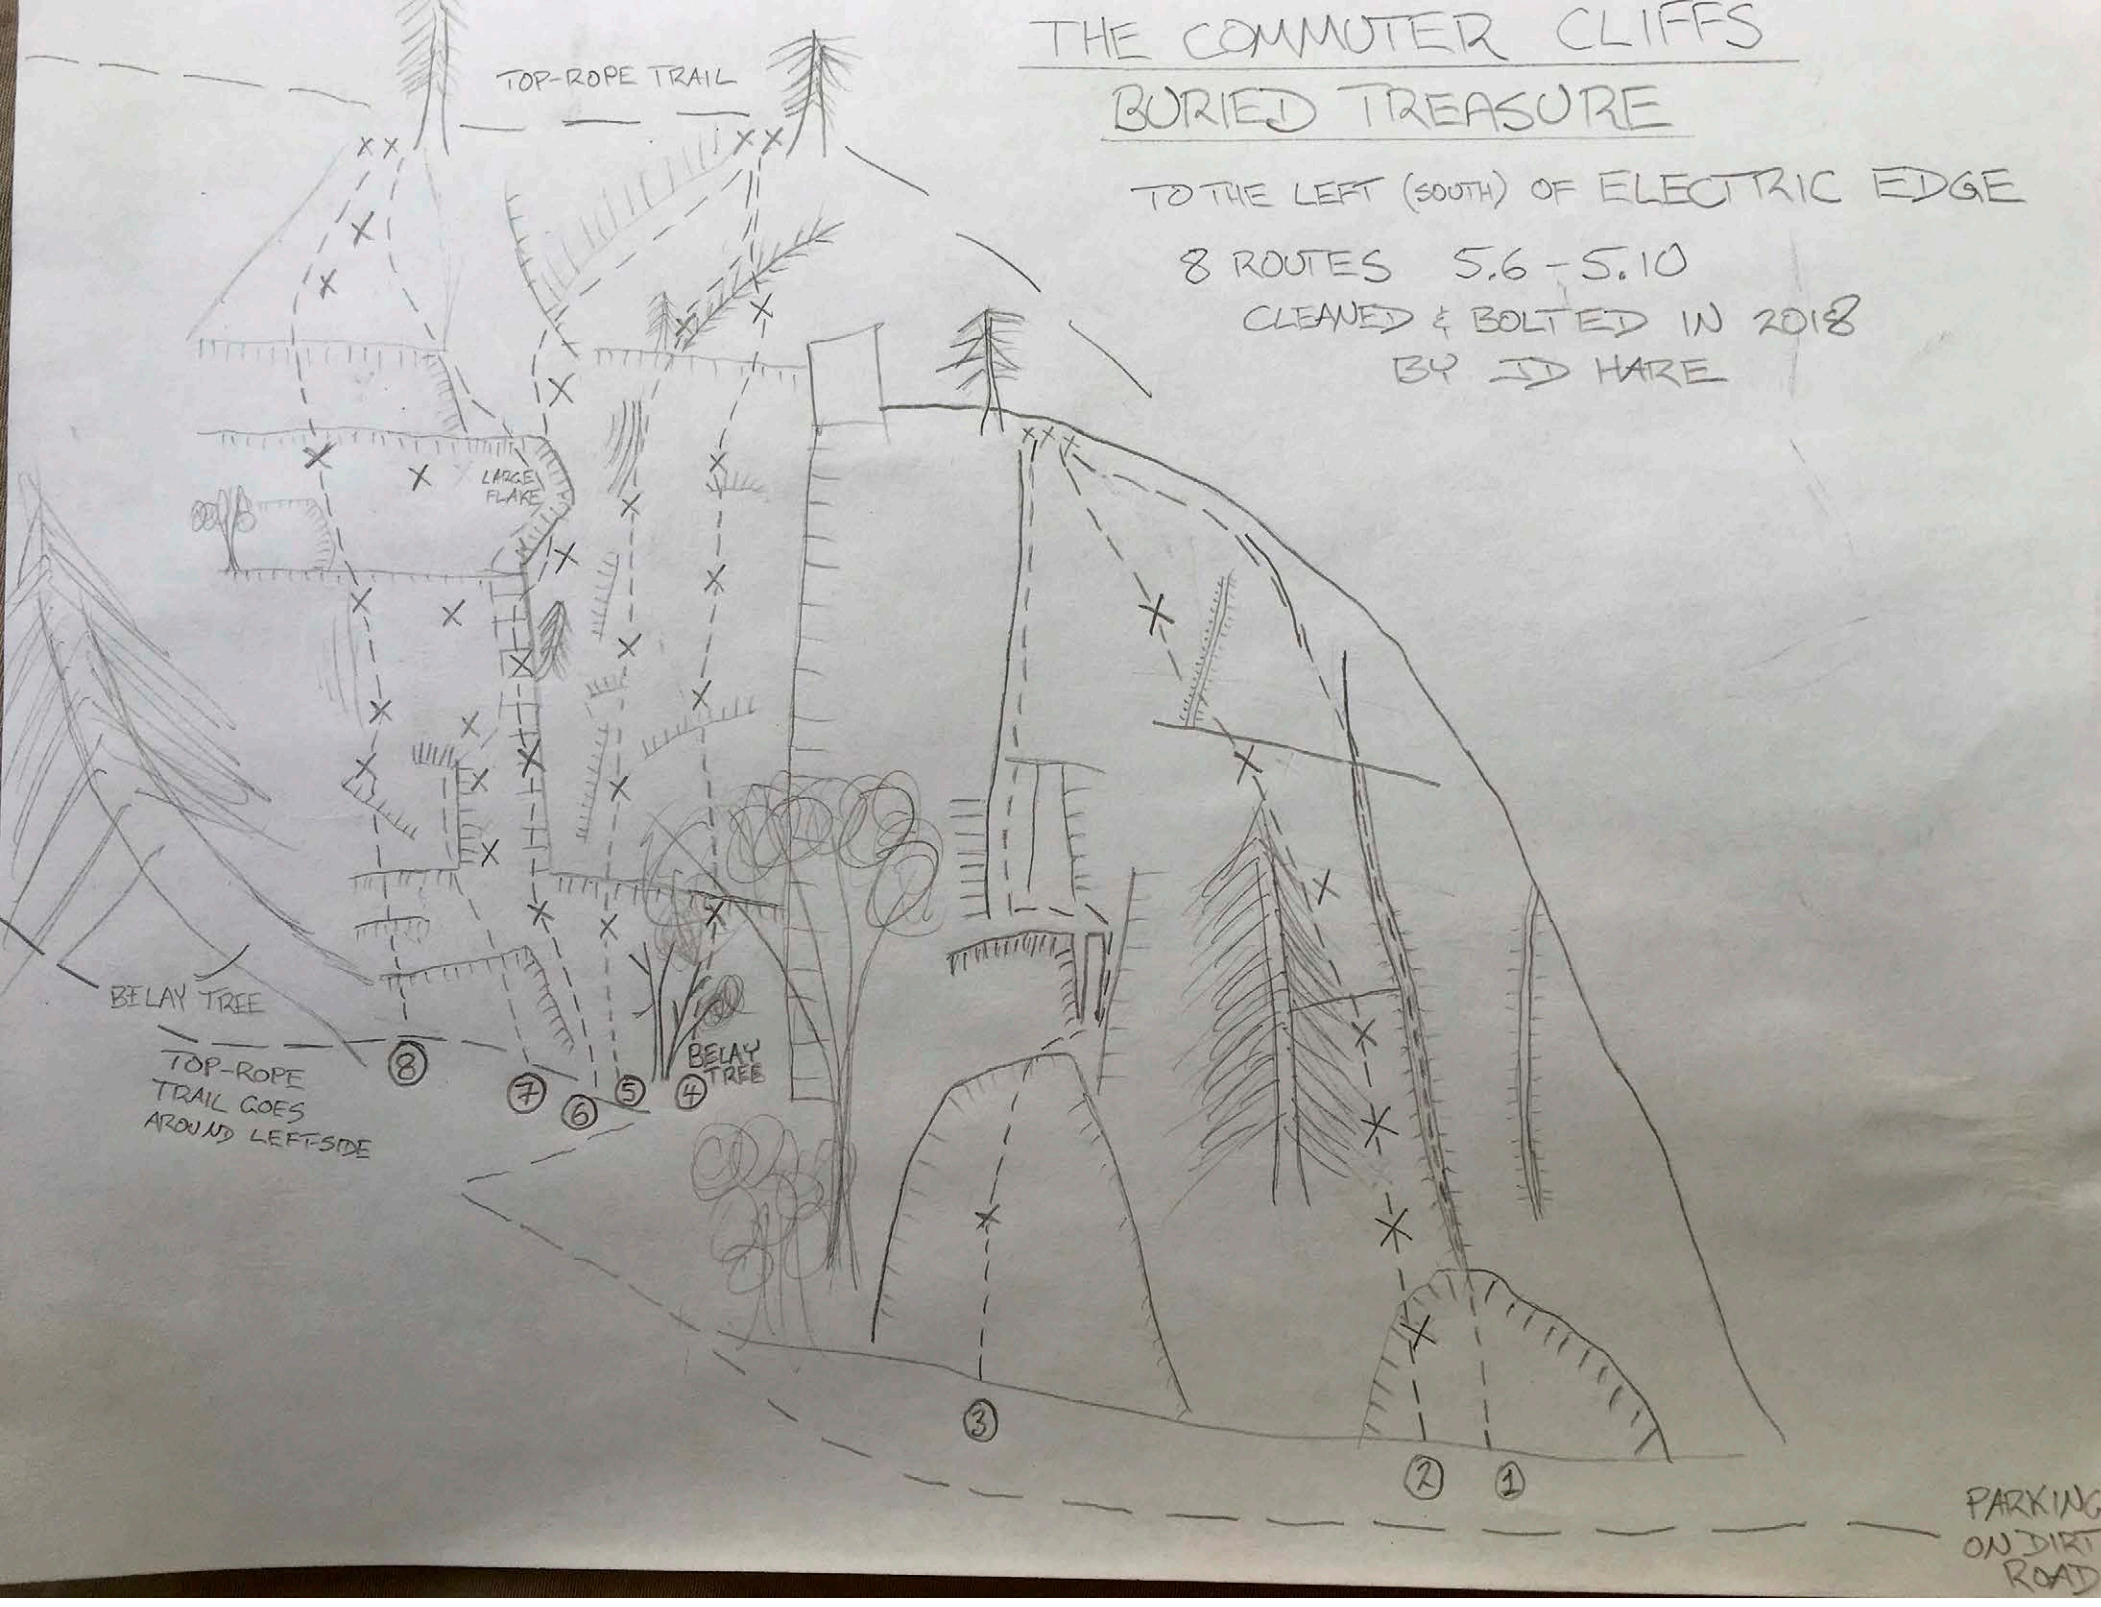 THE COMMUTER CLIFFS
BURIED TREASURE
TO THE LEFT (SOUTH) OF ELECTRIC EDGE
8 ROUTES 5.6-5.10
CLEANED & BOLTED IN 2018
BY JD HARE
TOP-ROPE TRAIL
LARGE
FLAKE
BELAY TREE
TOP-ROPE
TRAIL GOES
AROUND LEFT-SIDE
BELAY
TREE
8
7
6
5
4
3
2
1
PARKING
ON DIRT
ROAD